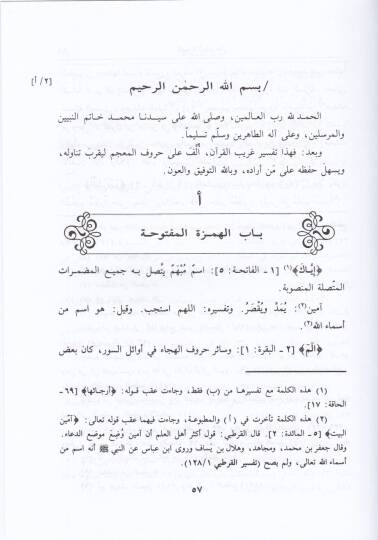 [٢/ أ]
/ بسم الله الرحمن الرحيم
الحمد لله رب العالمين، وصلى الله على سيدنا محمد خاتم النبيين
والمرسلين، وعلى آله الطاهرين وسلّم تسليماً.
وبعد: فهذا تفسير غريب القرآن، أُلّفَ على حروف المعجم ليقربَ تناوله،
ويسهلَ حفظه على مَن أراده، وبالله التوفيق والعون.
أ
باب الهمزة المفتوحة
﴿إِيَّاكَ﴾(١) [١ - الفاتحة: ٥]: اسمٌ مُبْهَمٌ يتَّصل به جميع المضمرات
المتّصلة المنصوبة.
آمين(٢): يُمَدُّ ويُقْصَرُ. وتفسيره: اللهم استجب. وقيل: هو اسم من
أسماء الله(٣).
﴿الۤمۤ﴾ [٢ - البقرة: ١]: وسائر حروف الهجاء في أوائل السور، كان بعض
(١) هذه الكلمة مع تفسيرها من (ب) فقط، وجاءت عقب قوله: ﴿أرجائها﴾ [٦٩ -
الحاقة: ١٧].
(٢) هذه الكلمة تأخرت في (أ) والمطبوعة، وجاءت فيهما عقب قوله تعالى: ﴿آمّين
البيت﴾ [٥ - المائدة: ٢]. قال القرطبي: قول أكثر أهل العلم أن آمين وُضِعَ موضع الدعاء.
وقال جعفر بن محمد، ومجاهد، وهلال بن يساف وروى ابن عباس عن النبي ﷺ أنه اسم من
أسماء الله تعالى، ولم يصح (تفسير القرطبي ١٢٨/١).
٥٧